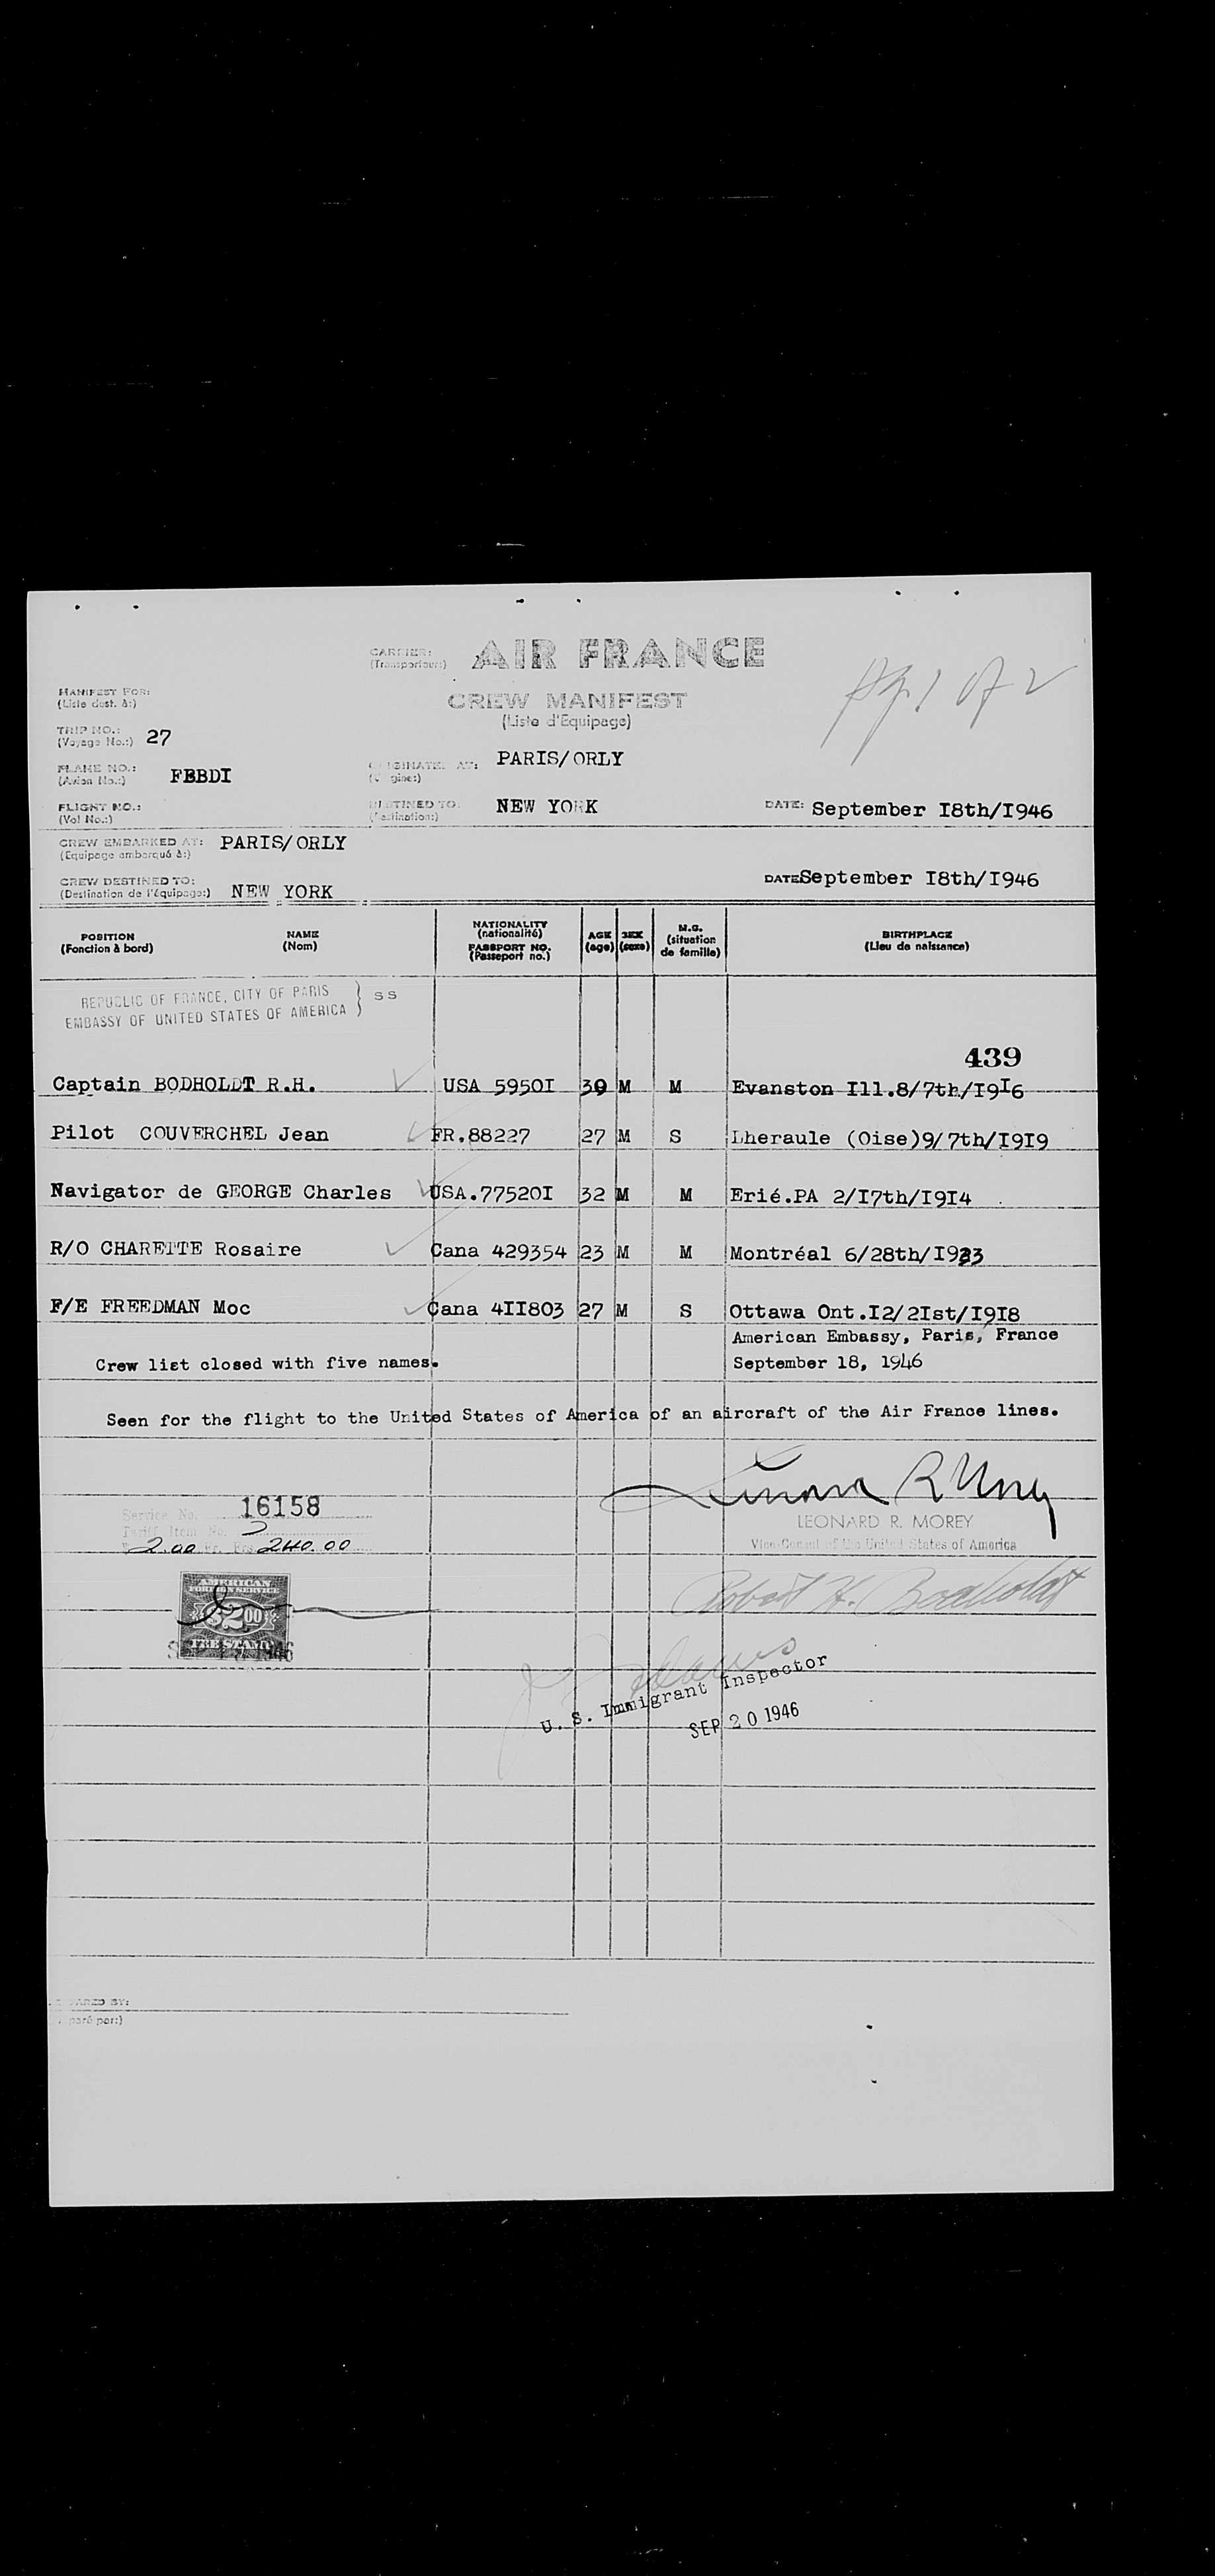 CARRIER: AIR FRANCE
(Transporteur:)
MANIFEST FOR:
(Liste dest. à:)
CREW MANIFEST
(Liste d'Equipage)
pg. 1 of 2
TRIP NO.:
(Voyage No.:) 27
PLANE NO.:
(Avion No.:) FBBDI
ORIGINATED AT: PARIS/ORLY
FLIGHT NO.:
(Vol No.:)
DESTINED TO: NEW YORK
(Destination:)
DATE: September I8th/I946
CREW EMBARKED AT: PARIS/ORLY
(Equipage embarqué à:)
CREW DESTINED TO:
(Destination de l'équipage:) NEW YORK
DATE September I8th/I946
POSITION
(Fonction à bord)
NAME
(Nom)
NATIONALITY
(nationalité)
PASSPORT NO.
(Passeport no.)
AGE
(age)
SEX
(sexe)
M.G.
(situation
de famille)
BIRTHPLACE
(Lieu de naissance)
REPUBLIC OF FRANCE, CITY OF PARIS
EMBASSY OF UNITED STATES OF AMERICA } SS
439
Captain BODHOLDT R.H. USA 5950I 30 M M Evanston Ill.8/7th/I9I6
Pilot COUVERCHEL Jean FR.88227 27 M S Lheraule (Oise)9/7th/I9I9
Navigator de GEORGE Charles USA.77520I 32 M M Erié.PA 2/I7th/I9I4
R/O CHARETTE Rosaire Cana 429354 23 M M Montréal 6/28th/I923
F/E FREEDMAN Moc Cana 4II803 27 M S Ottawa Ont.I2/2Ist/I9I8
American Embassy, Paris, France
Crew list closed with five names. September 18, 1946
Seen for the flight to the United States of America of an aircraft of the Air France lines.
Leonard R Morey
LEONARD R. MOREY
Vice-Consul of the United States of America
Service No. 16158
Tariff Item No.
2.00 Frs 240.00
Robert H. Bodholdt
AMERICAN
FOREIGN SERVICE
$2.00
FEE STAMP
U. S. Immigrant Inspector
SEP 20 1946
PREPARED BY:
(Préparé par:)